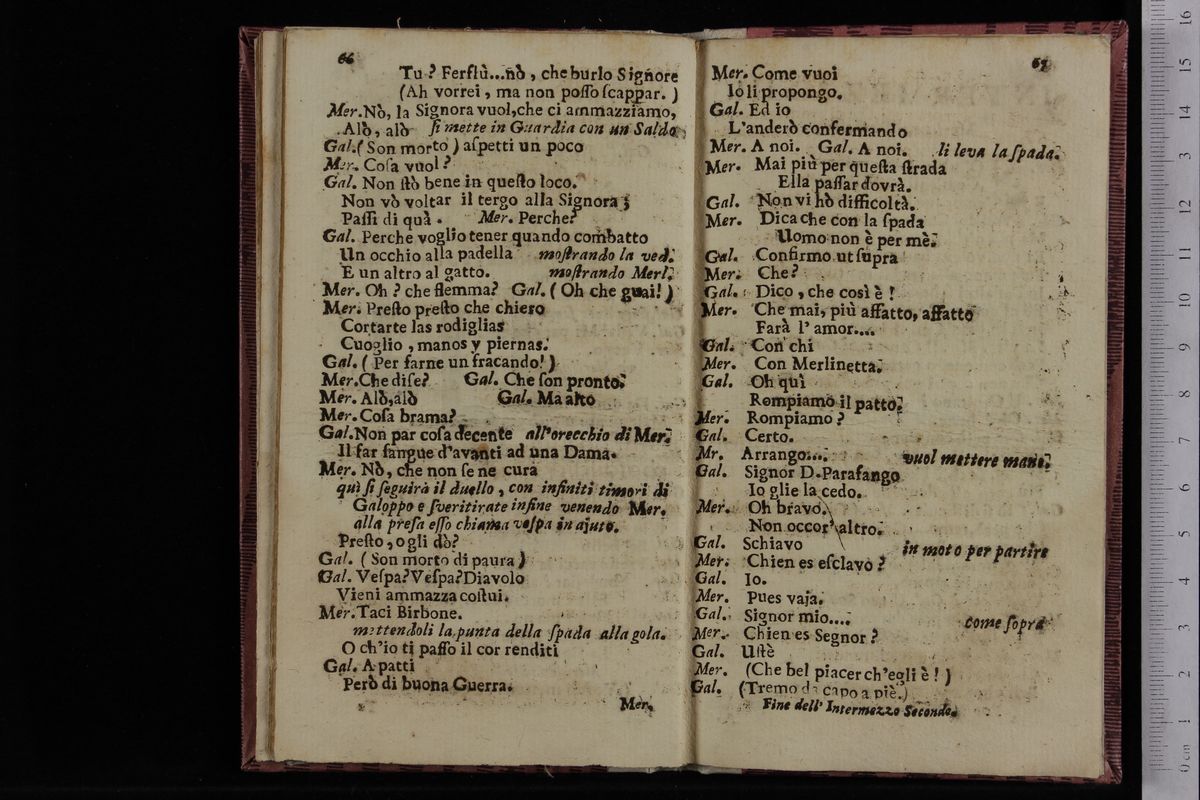 66
Tu? Ferflù...nò, che burlo Signore
(Ah vorrei, ma non poſſo ſcappar.)
Mer. Nò, la Signora vuol, che ci ammazziamo,
Alò, alò ſi mette in Guardia con un Saldo;
Gal. (Son morto) aſpetti un poco
Mer. Coſa vuol?
Gal. Non ſtò bene in queſto loco.
Non vò voltar il tergo alla Signora;
Paſſi di quà. Mer. Perche?
Gal. Perche voglio tener quando combatto
Un occhio alla padella moſtrando la ved.
E un altro al gatto. moſtrando Merl.
Mer. Oh? che flemma? Gal. (Oh che guai!)
Mer. Preſto preſto che chiero
Cortarte las rodiglias
Cuoglio, manos y piernas.
Gal. (Per farne un fracando!)
Mer. Che diſe? Gal. Che ſon pronto.
Mer. Alò, alò Gal. Ma alto
Mer. Coſa brama?
Gal. Non par coſa decente all'orecchio di Mer.
Il far ſangue d'avanti ad una Dama.
Mer. Nò, che non ſe ne cura
quì ſi ſeguirà il duello, con infiniti timori di
Galoppo e ſveritirate infine venendo Mer.
alla preſa eſſo chiama veſpa in ajuto.
Preſto, o gli dò?
Gal. (Son morto di paura)
Gal. Veſpa? Veſpa? Diavolo
Vieni ammazza coſtui.
Mer. Taci Birbone.
mettendoli la punta della ſpada alla gola.
O ch'io ti paſſo il cor renditi
Gal. A patti
Però di buona Guerra.
Mer.
67
Mer. Come vuoi
Io li propongo.
Gal. Ed io
L'anderò confermando
Mer. A noi. Gal. A noi. li leva la ſpada.
Mer. Mai più per queſta ſtrada
Ella paſſar dovrà.
Gal. Non vi hò difficoltà.
Mer. Dica che con la ſpada
Uomo non è per mè.
Gal. Confirmo ut ſupra
Mer. Che?
Gal. Dico, che così è!
Mer. Che mai, più affatto, affatto
Farà l'amor....
Gal. Con chi
Mer. Con Merlinetta.
Gal. Oh quì
Rompiamo il patto.
Mer. Rompiamo?
Gal. Certo.
Mr. Arrango.... vuol mettere mano.
Gal. Signor D. Parafango
Io glie la cedo.
Mer. Oh bravo.
Non occor' altro.
Gal. Schiavo in moto per partire
Mer. Chien es eſclavo?
Gal. Io.
Mer. Pues vaja.
Gal. Signor mio.... come ſopra
Mer. Chien es Segnor?
Gal. Uſtè
Mer. (Che bel piacer ch'egli è!)
Gal. (Tremo da capo a piè.)
Fine dell' Intermezzo Secondo.